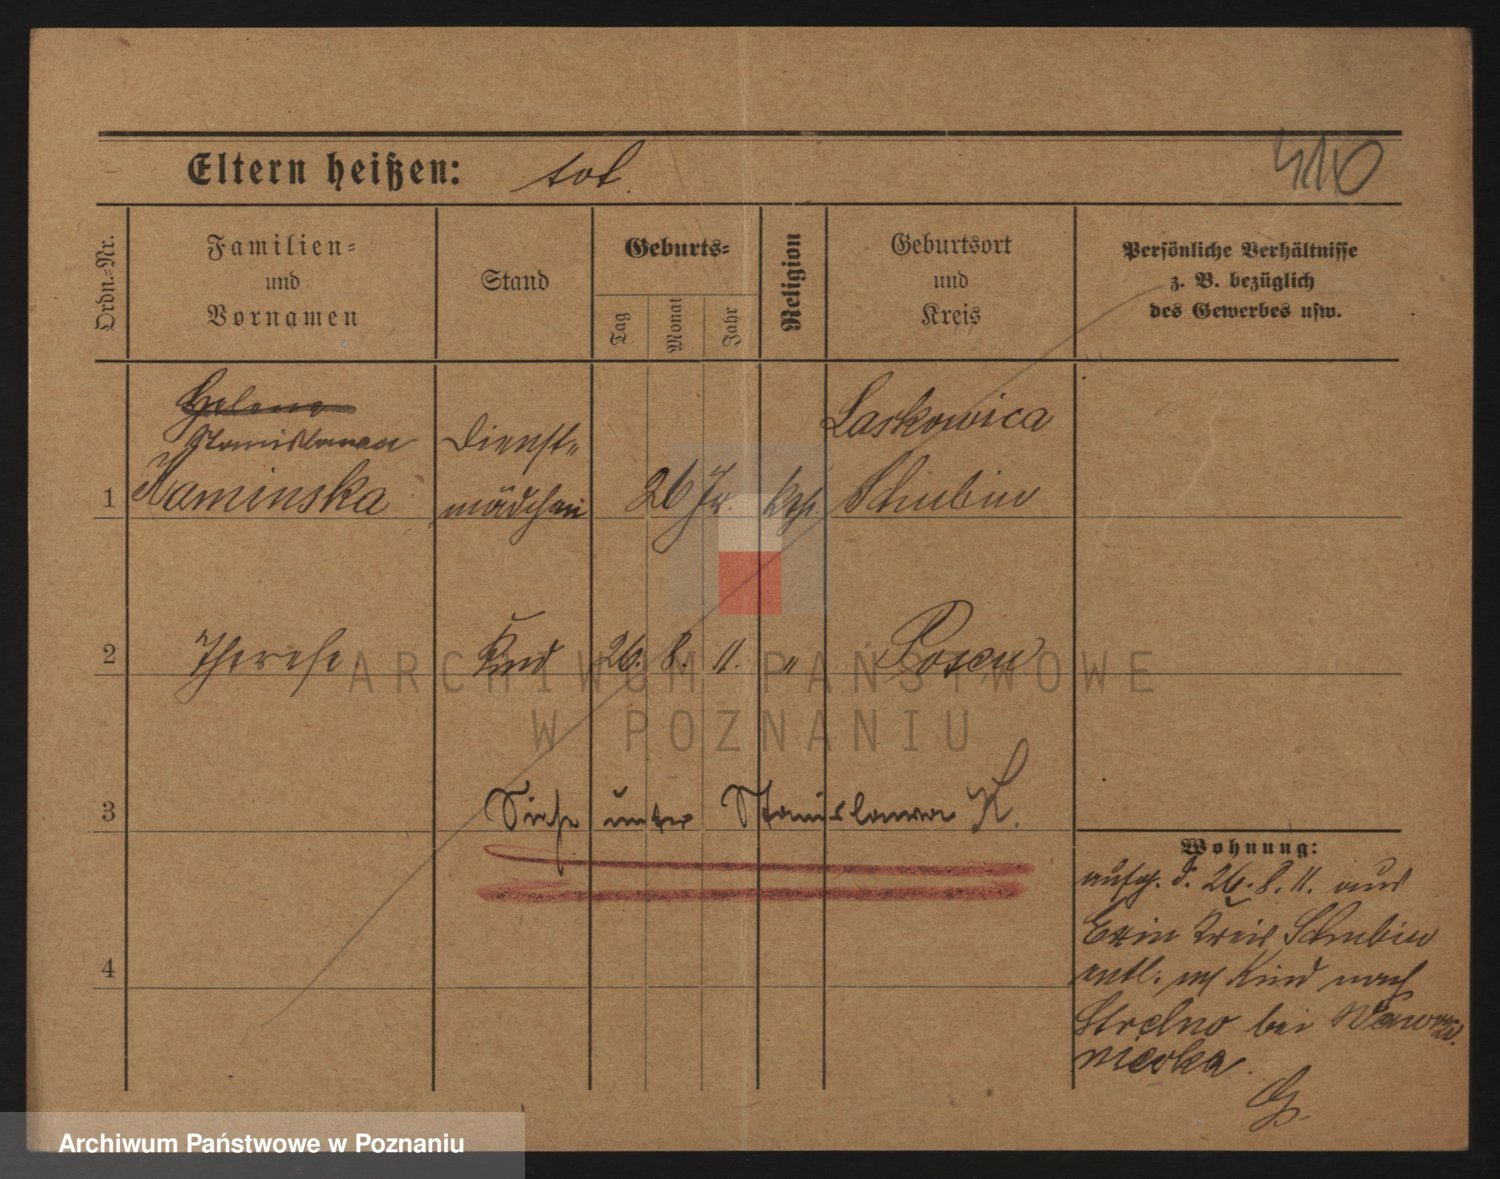 Eltern heißen: tot.
410
Ordn.-Nr.
Familien-
und
Vornamen
Stand
Geburts-
Tag
Monat
Jahr
Religion
Geburtsort
und
Kreis
Persönliche Verhältnisse
z. B. bezüglich
des Gewerbes usw.
Helena
Stanislawa
1 Kaminska
Dienst-
mädchen
26 J. kth.
Laskowica
Schubin
2 Therese Kind 26. 8. 11. " Posen
3 Siehe unter Stanislawa K.
4
Wohnung:
aufg. d. 26.8.11. aus
Exin Kreis Schubin
entl. m Kind nach
Strelno bei
ARCHIWUM PAŃSTWOWE
W POZNANIU
Archiwum Państwowe w Poznaniu